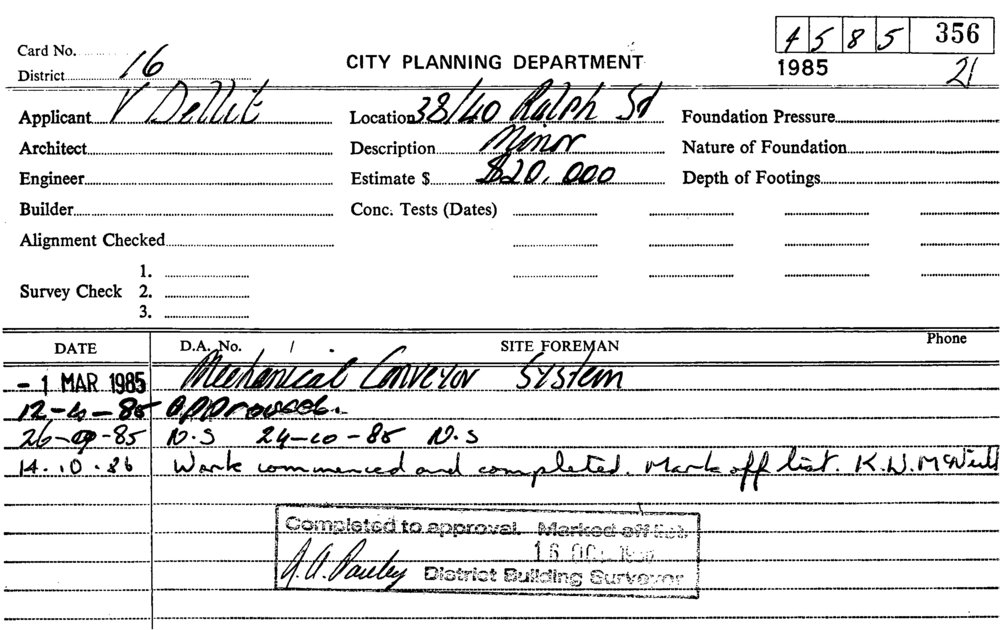 Card No. 4 5 8 5 356
District 16 CITY PLANNING DEPARTMENT 1985 21
Applicant V Dellit Location 38/40 Ralph St Foundation Pressure
Architect Description Minor Nature of Foundation
Engineer Estimate $ $20,000 Depth of Footings
Builder Conc. Tests (Dates)
Alignment Checked
1.
Survey Check 2.
3.
DATE D.A. No. / SITE FOREMAN Phone
- 1 MAR 1985 Mechanical Conveyor System
12-4-85 approved.
26-9-85 N.S 24-10-85 N.S
14.10.86 Work commenced and completed. Mark off list. K.W. McNeill
Completed to approval. Marked off list.
16 OCT 1986
A.A. Pauley District Building Surveyor